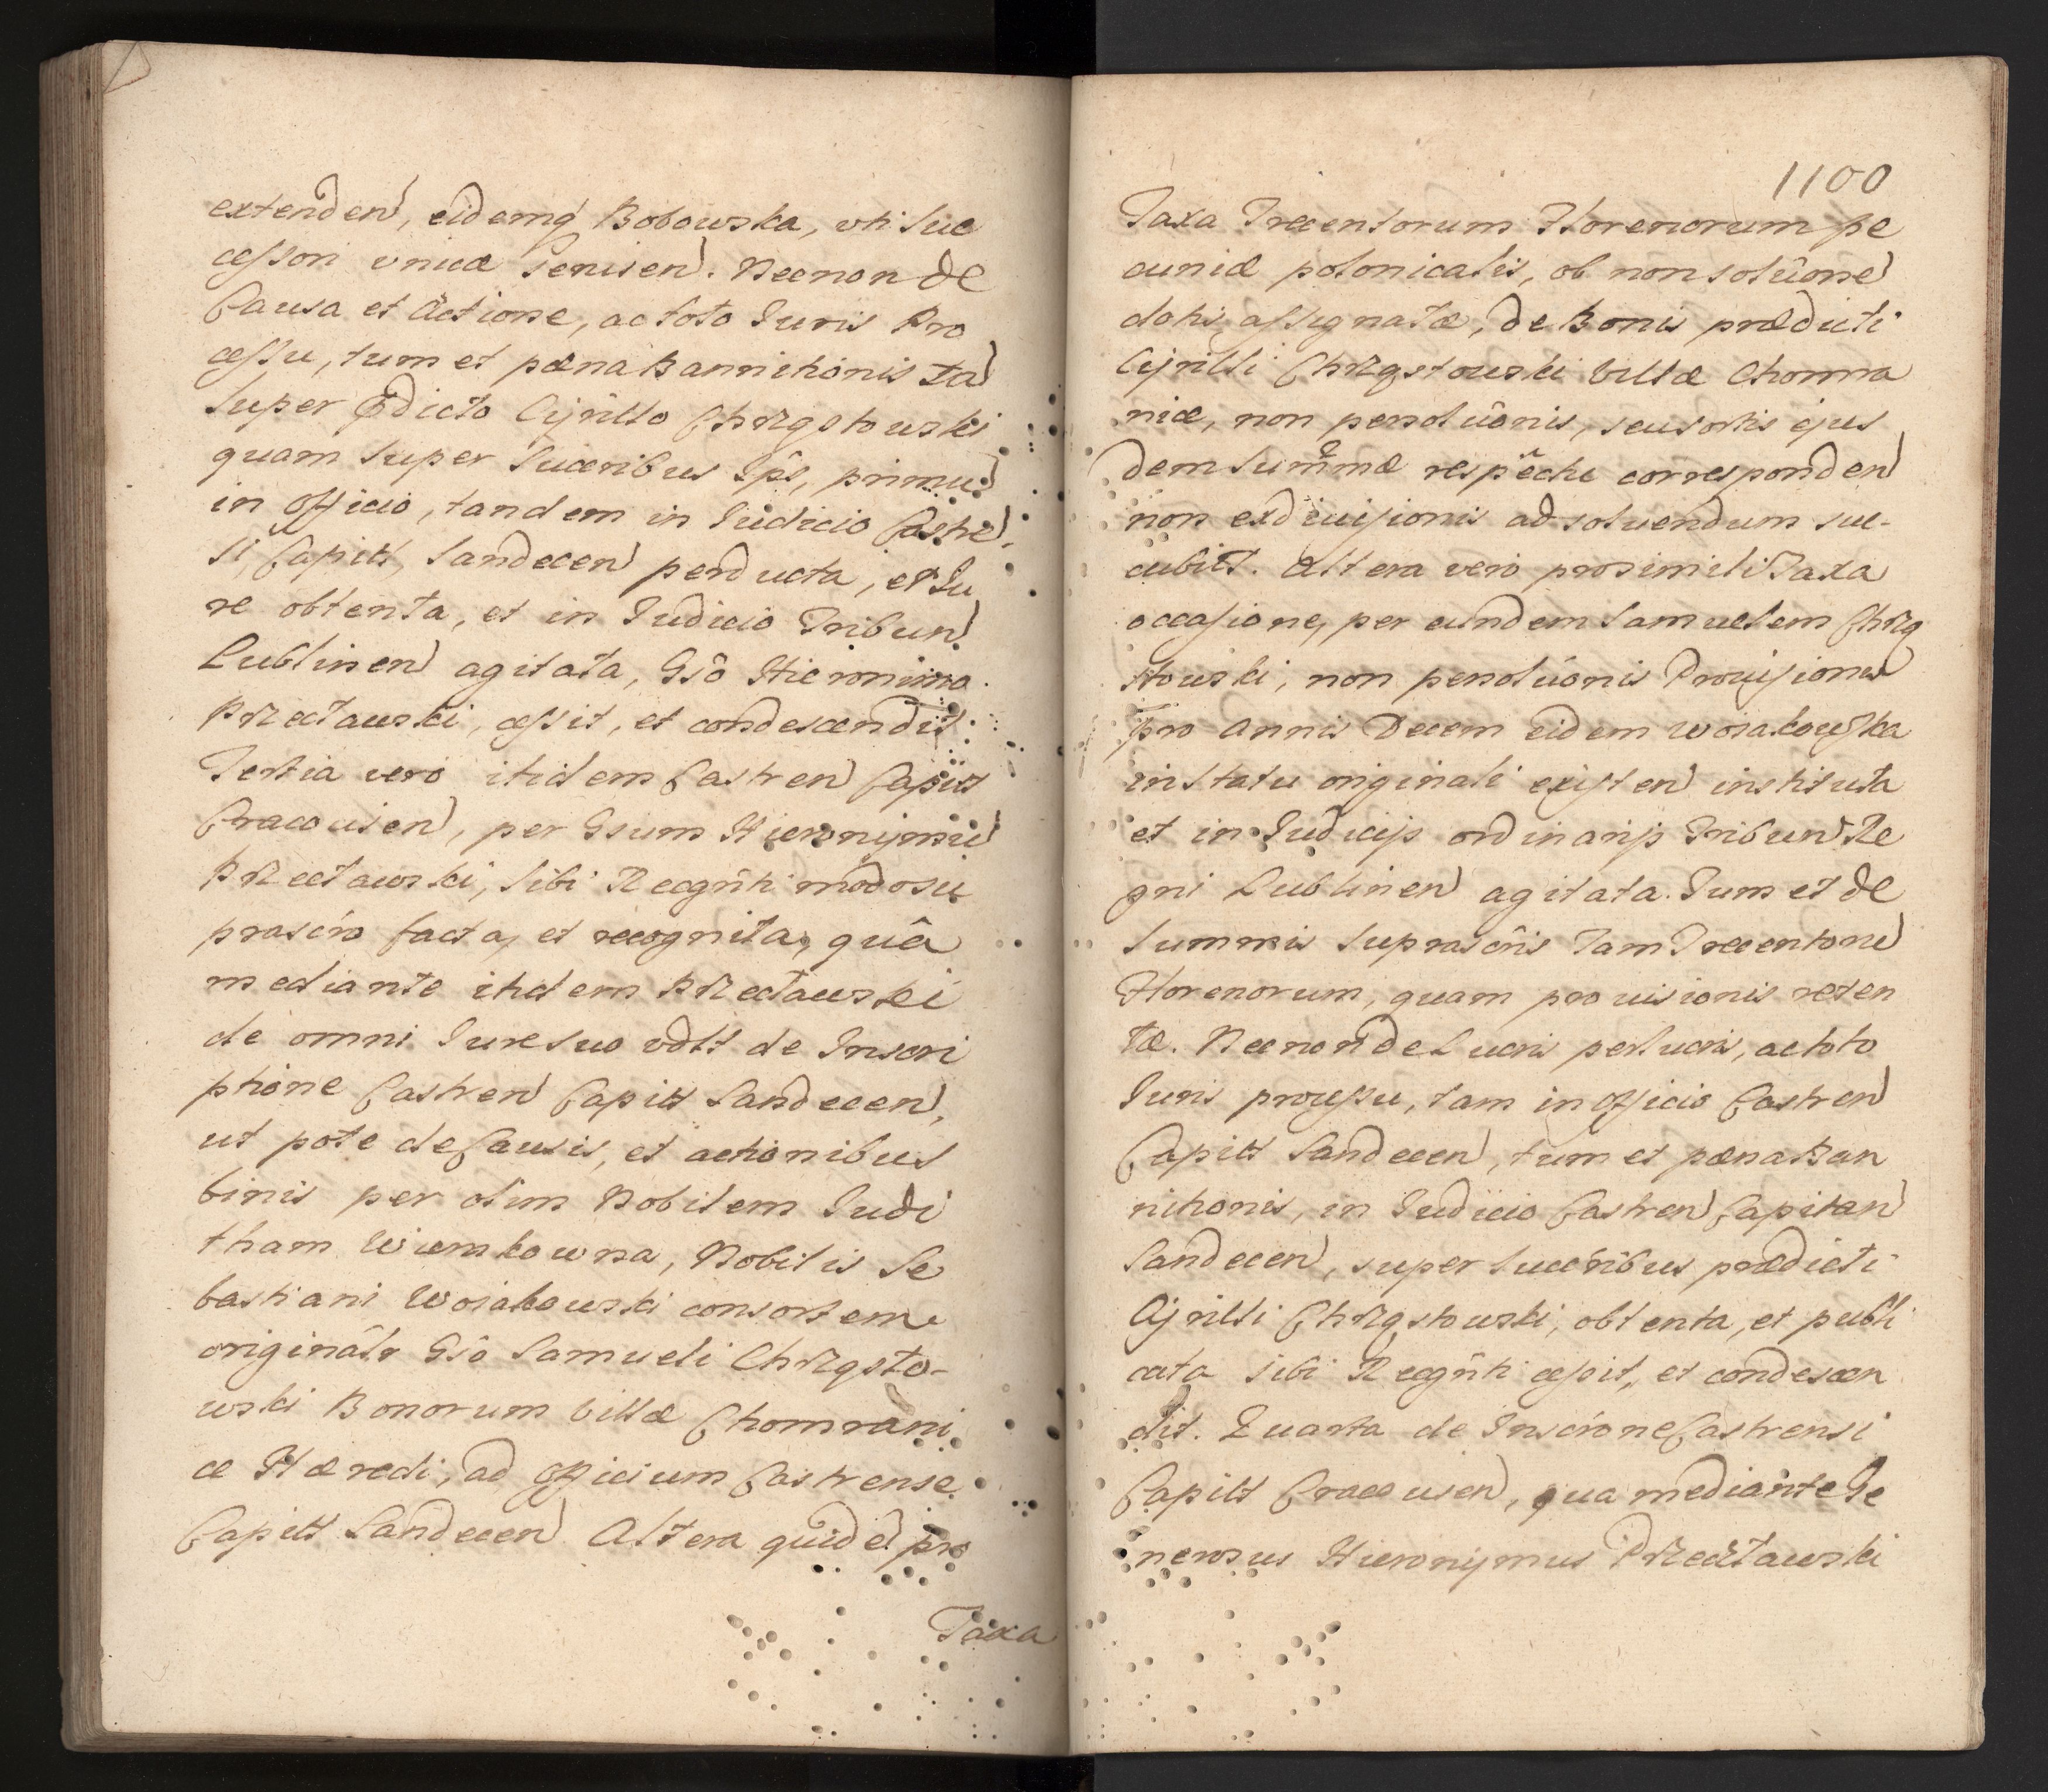 extenden, eidemq Bobowska, vti Suc
cessori unicæ Seruien. Necnon de
Causa et Actione, ac toto Iuris Pro
cessu, tum et pæna Bannitionis Ta
super Pdicto Cyrillo Chrząstowski
quam super Succribus Ips, primu
in Officio, tandem in Iudicio Castre
si, Capitt, Sandecen perducta, et Iu
re obtenta, et in Iudicio Tribun
Lublinen agitata, Gsô Hieronimo
Przectawski, cessit, et condescendit
Tertia vero itidem Castren Capitt
Cracouien, per Gsum Hieronymu
Przectawski, sibi Recgnti modo su
prascro facta, et recognita, quâ
mediante itidem Przectawski
de omni Iure suo vdtt de Inscri
ptione Castren Capitt Sandecen,
ut pote de Causis, et actionibus
binis per olim Nobilem Iudi
tham Wiernkowna, Nobilis Se
bastiani Woiakowski consortem
originâtr Gsô Samueli Chrząsto-
wski Bonorum Villæ Chomrani
cæ Hæredi, ad Officium Castrense
Capitt Sandecen Altera quide pro
Taxa
1100
Taxa Trecentorum Florenorum pe
cuniæ polonicalis, ob non solûone
dotis assignatæ, de Bonis prædicti
Cyrilli Chrząstowski Villæ Chomra
nicæ, non persolûonis, seu sortis ejus
dem Summæ respectu corresponden
non exdiuisionis ad soluendum suc-
cubitt. Altera vero prosimili Taxa
occasione, per eundem Samuelem Chrzą
stowski, non persolûonis Prouisiones
pro Annis Decem eidem Woiakowska
in Statu originali existen instituta
et in Iudicijs ordinarijs Tribun Re
gni Lublinen agitata. Tum et de
Summis suprascris Tam Trecentoru
Florenorum, quam prouisionis reten
tæ. Necnon de Lucris perlucris, ac toto
Iuris processu, tam in Officio Castren
Capitt Sandecen, tum et pæna Ban
nitionis, in Iudicio Castren Capitan
Sandecen, super Succribus prædicti
Cyrilli Chrząstowski, obtenta, et publi
cata sibi Recgnti cessit, et condescen
dit. Quarta de Inscrone Castrensi
Capitt Cracouien, qua mediante Ge
nerosus Hieronymus Przectawski